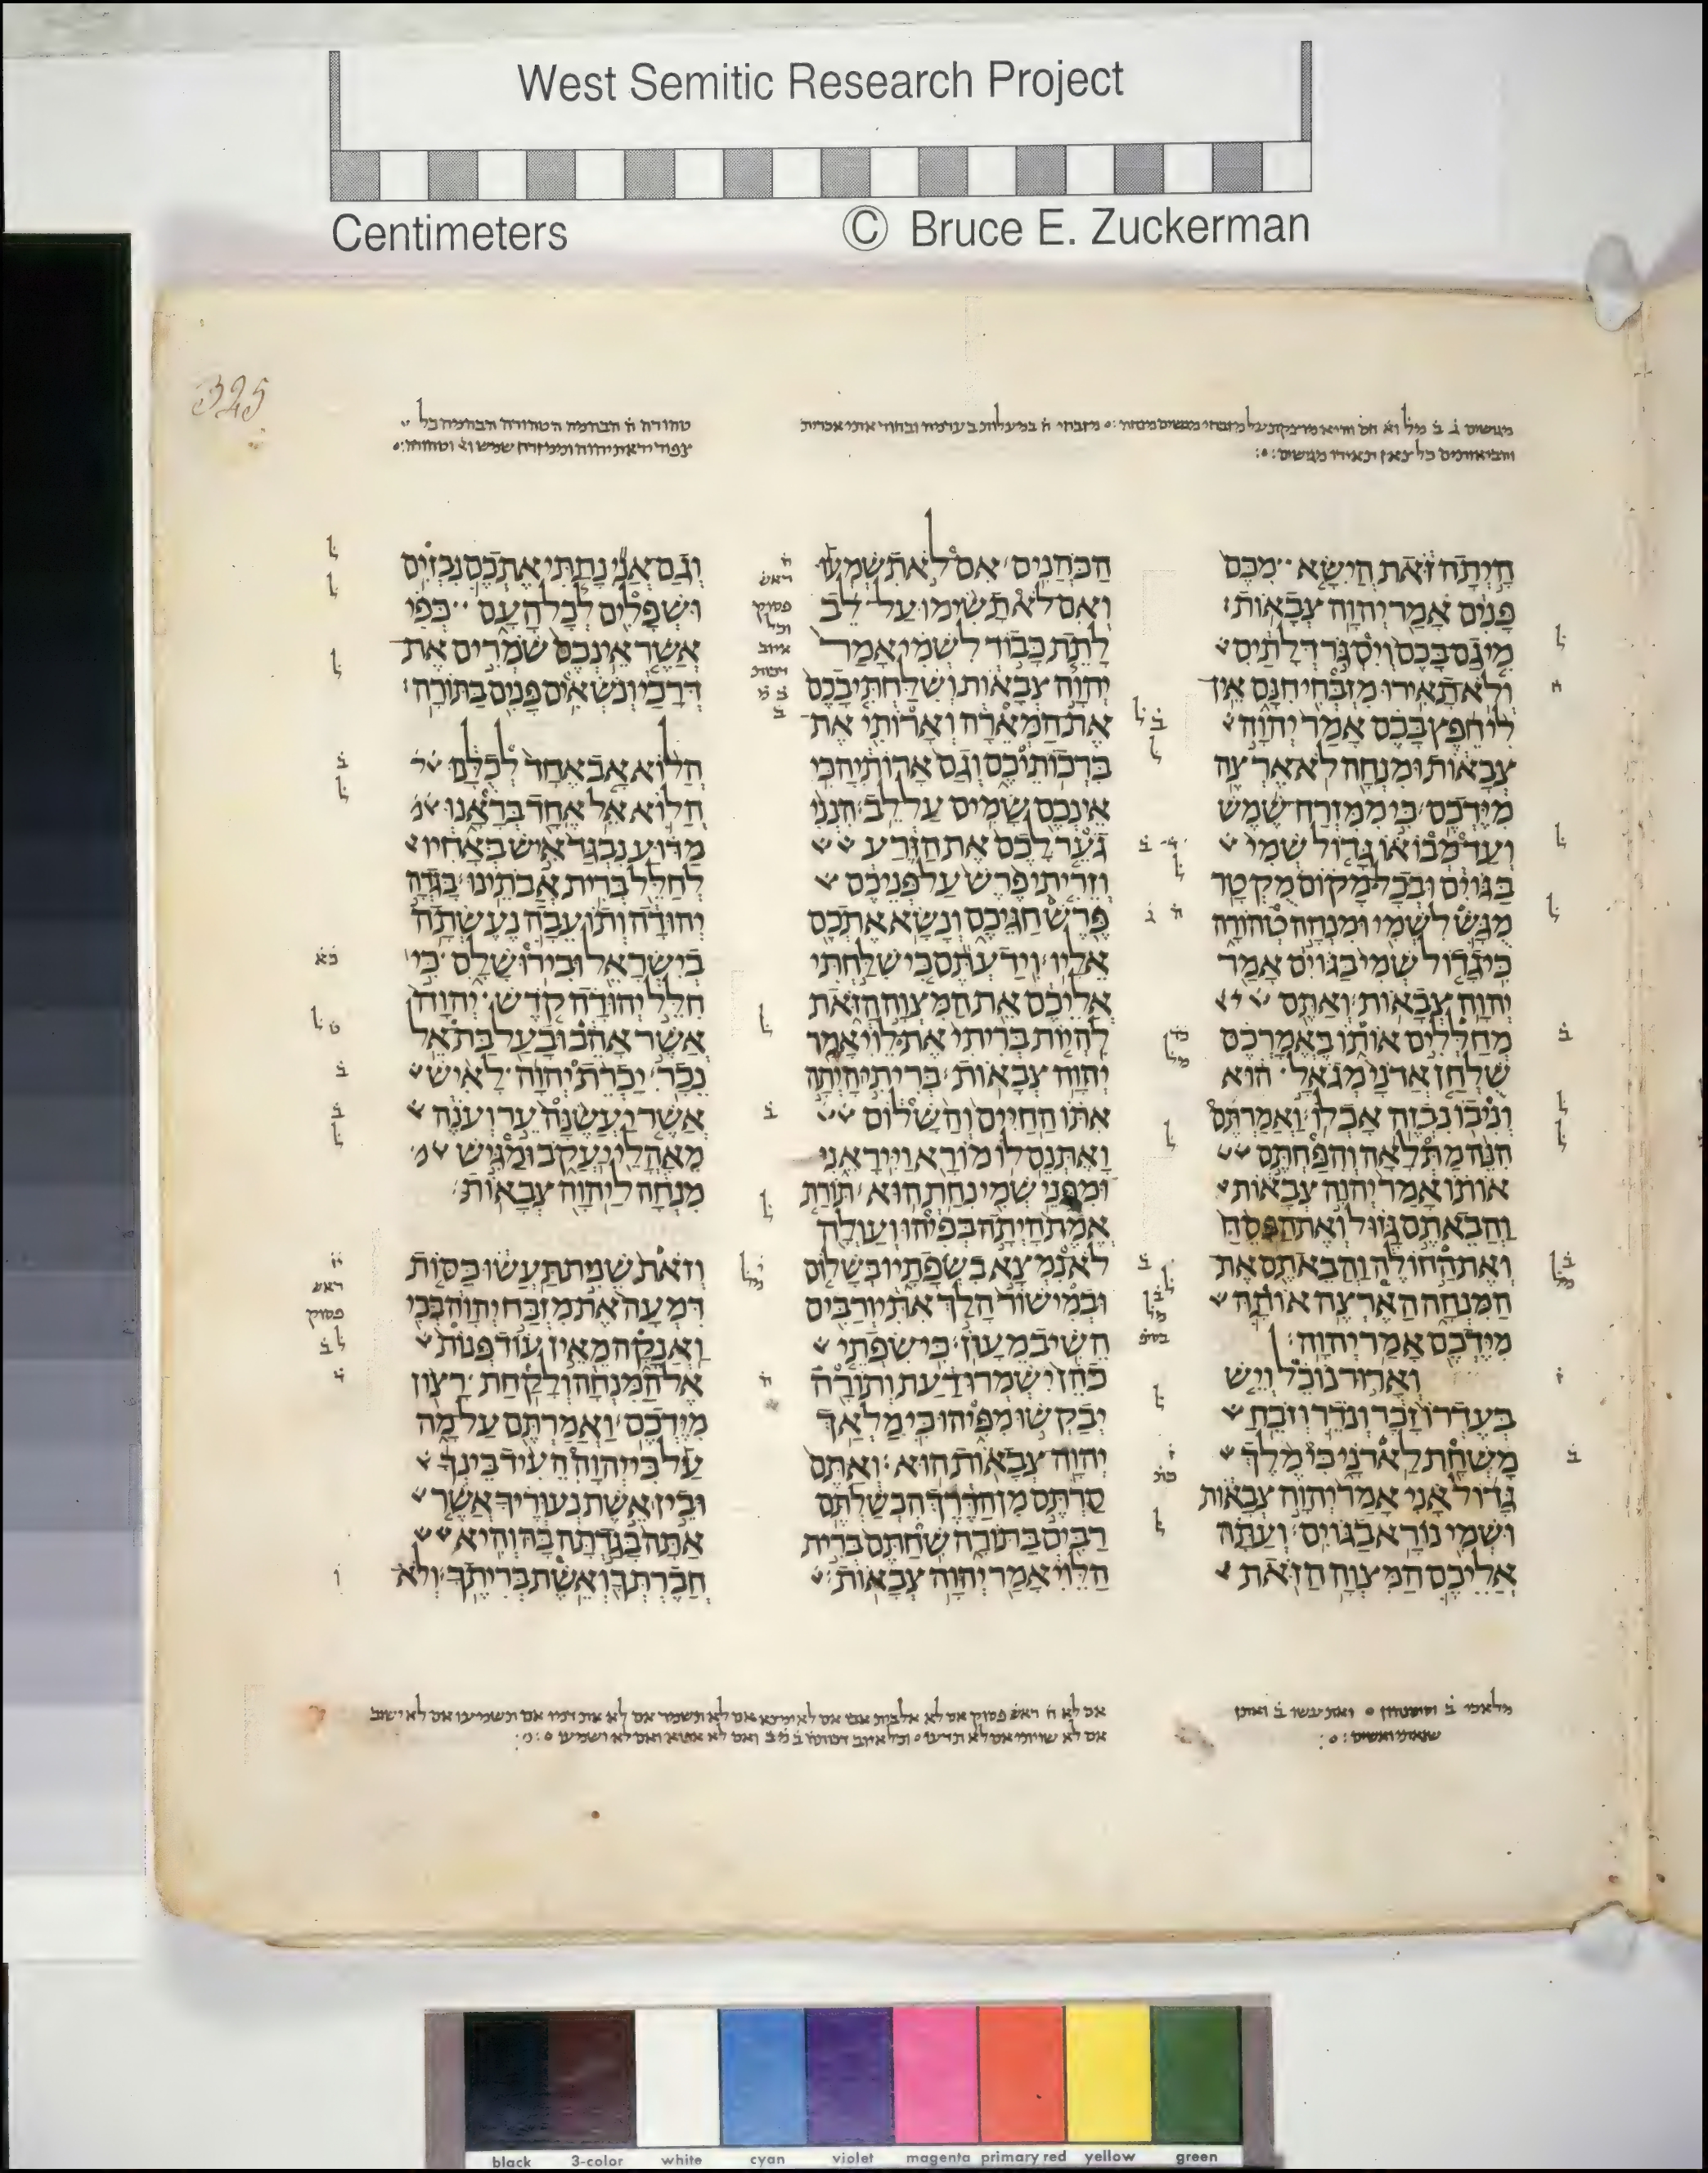 West Semitic Research Project
Centimeters © Bruce E. Zuckerman
325
הָיְתָה זֹּאת הֲיִשָּׂא מִכֶּם
פָּנִים אָמַר יְהוָה צְבָאוֹת׃
מִי גַם בָּכֶם וְיִסְגֹּר דְּלָתַיִם
וְלֹא תָאִירוּ מִזְבְּחִי חִנָּם אֵין
לִי חֵפֶץ בָּכֶם אָמַר יְהוָה
צְבָאוֹת וּמִנְחָה לֹא אֶרְצֶה
מִיֶּדְכֶם׃ כִּי מִמִּזְרַח שֶׁמֶשׁ
וְעַד מְבוֹאוֹ גָּדוֹל שְׁמִי
בַּגּוֹיִם וּבְכָל מָקוֹם מֻקְטָר
מֻגָּשׁ לִשְׁמִי וּמִנְחָה טְהוֹרָה
כִּי גָדוֹל שְׁמִי בַּגּוֹיִם אָמַר
יְהוָה צְבָאוֹת׃ וְאַתֶּם
מְחַלְּלִים אוֹתוֹ בֶּאֱמָרְכֶם
שֻׁלְחַן אֲדֹנָי מְגֹאָל הוּא
וְנִיבוֹ נִבְזֶה אָכְלוֹ׃ וַאֲמַרְתֶּם
הִנֵּה מַתְּלָאָה וְהִפַּחְתֶּם
אוֹתוֹ אָמַר יְהוָה צְבָאוֹת
וַהֲבֵאתֶם גָּזוּל וְאֶת הַפִּסֵּחַ
וְאֶת הַחוֹלֶה וַהֲבֵאתֶם אֶת
הַמִּנְחָה הַאֶרְצֶה אוֹתָהּ
מִיֶּדְכֶם אָמַר יְהוָה׃
וְאָרוּר נוֹכֵל וְיֵשׁ
בְּעֶדְרוֹ זָכָר וְנֹדֵר וְזֹבֵחַ
מָשְׁחָת לַאדֹנָי כִּי מֶלֶךְ
גָּדוֹל אָנִי אָמַר יְהוָה צְבָאוֹת
וּשְׁמִי נוֹרָא בַגּוֹיִם׃ וְעַתָּה
אֲלֵיכֶם הַמִּצְוָה הַזֹּאת
הַכֹּהֲנִים׃ אִם לֹא תִשְׁמְעוּ
וְאִם לֹא תָשִׂימוּ עַל לֵב
לָתֵת כָּבוֹד לִשְׁמִי אָמַר
יְהוָה צְבָאוֹת וְשִׁלַּחְתִּי בָכֶם
אֶת הַמְּאֵרָה וְאָרוֹתִי אֶת
בִּרְכוֹתֵיכֶם וְגַם אָרוֹתִיהָ כִּי
אֵינְכֶם שָׂמִים עַל לֵב׃ הִנְנִי
גֹעֵר לָכֶם אֶת הַזֶּרַע
וְזֵרִיתִי פֶרֶשׁ עַל פְּנֵיכֶם
פֶּרֶשׁ חַגֵּיכֶם וְנָשָׂא אֶתְכֶם
אֵלָיו׃ וִידַעְתֶּם כִּי שִׁלַּחְתִּי
אֲלֵיכֶם אֵת הַמִּצְוָה הַזֹּאת
לִהְיוֹת בְּרִיתִי אֶת לֵוִי אָמַר
יְהוָה צְבָאוֹת׃ בְּרִיתִי הָיְתָה
אִתּוֹ הַחַיִּים וְהַשָּׁלוֹם
וָאֶתְּנֵם לוֹ מוֹרָא וַיִּירָאֵנִי
וּמִפְּנֵי שְׁמִי נִחַת הוּא׃ תּוֹרַת
אֱמֶת הָיְתָה בְּפִיהוּ וְעַוְלָה
לֹא נִמְצָא בִשְׂפָתָיו בְּשָׁלוֹם
וּבְמִישׁוֹר הָלַךְ אִתִּי וְרַבִּים
הֵשִׁיב מֵעָוֺן׃ כִּי שִׂפְתֵי
כֹהֵן יִשְׁמְרוּ דַעַת וְתוֹרָה
יְבַקְשׁוּ מִפִּיהוּ כִּי מַלְאַךְ
יְהוָה צְבָאוֹת הוּא׃ וְאַתֶּם
סַרְתֶּם מִן הַדֶּרֶךְ הִכְשַׁלְתֶּם
רַבִּים בַּתּוֹרָה שִׁחַתֶּם בְּרִית
הַלֵּוִי אָמַר יְהוָה צְבָאוֹת׃
וְגַם אֲנִי נָתַתִּי אֶתְכֶם נִבְזִים
וּשְׁפָלִים לְכָל הָעָם כְּפִי
אֲשֶׁר אֵינְכֶם שֹׁמְרִים אֶת
דְּרָכַי וְנֹשְׂאִים פָּנִים בַּתּוֹרָה׃
הֲלוֹא אָב אֶחָד לְכֻלָּנוּ
הֲלוֹא אֵל אֶחָד בְּרָאָנוּ
מַדּוּעַ נִבְגַּד אִישׁ בְּאָחִיו
לְחַלֵּל בְּרִית אֲבֹתֵינוּ׃ בָּגְדָה
יְהוּדָה וְתוֹעֵבָה נֶעֶשְׂתָה
בְיִשְׂרָאֵל וּבִירוּשָׁלִָם כִּי
חִלֵּל יְהוּדָה קֹדֶשׁ יְהוָה
אֲשֶׁר אָהֵב וּבָעַל בַּת אֵל
נֵכָר׃ יַכְרֵת יְהוָה לָאִישׁ
אֲשֶׁר יַעֲשֶׂנָּה עֵר וְעֹנֶה
מֵאָהֳלֵי יַעֲקֹב וּמַגִּישׁ
מִנְחָה לַיהוָה צְבָאוֹת׃
וְזֹאת שֵׁנִית תַּעֲשׂוּ כַּסּוֹת
דִּמְעָה אֶת מִזְבַּח יְהוָה בְּכִי
וַאֲנָקָה מֵאֵין עוֹד פְּנוֹת
אֶל הַמִּנְחָה וְלָקַחַת רָצוֹן
מִיֶּדְכֶם׃ וַאֲמַרְתֶּם עַל מָה
עַל כִּי יְהוָה הֵעִיד בֵּינְךָ
וּבֵין אֵשֶׁת נְעוּרֶיךָ אֲשֶׁר
אַתָּה בָּגַדְתָּה בָּהּ וְהִיא
חֲבֶרְתְּךָ וְאֵשֶׁת בְּרִיתֶךָ׃ וְלֹא
black 3-color white cyan violet magenta primary red yellow green